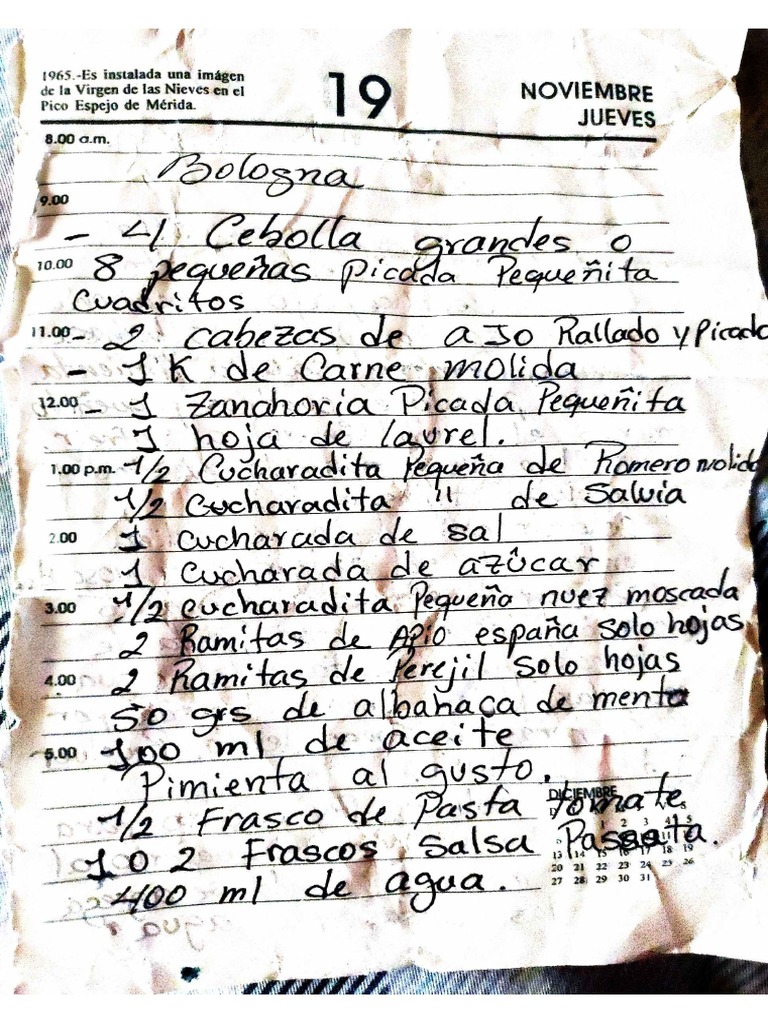 1965.-Es instalada una imágen
de la Virgen de las Nieves en el
Pico Espejo de Mérida.
19
NOVIEMBRE
JUEVES
8.00 a.m.
Bologna
9.00
- 4 Cebolla grandes o
10.00 8 pequeñas picada Pequeñita
Cuadritos
11.00 - 2 cabezas de aJo Rallado y Picado
- 1 K de Carne molida
12.00 - 1 Zanahoria Picada Pequeñita
1 hoja de laurel.
1.00 p.m. 1/2 Cucharadita Pequeña de Romero molido
1/2 cucharadita " de Salvia
2.00 1 cucharada de sal
1 cucharada de azúcar
3.00 1/2 cucharadita Pequeña nuez moscada
2 Ramitas de Apio españa solo hojas
4.00 2 Ramitas de Perejil solo hojas
50 grs de albahaca de menta
5.00 100 ml de aceite
Pimienta al gusto.
1/2 Frasco de Pasta tomate
1 o 2 Frascos Salsa Passata.
400 ml de agua.
DICIEMBRE
1 2 3 4 5
13 14 15 16 17 18 19
20 21 22 23 24 25 26
27 28 29 30 31